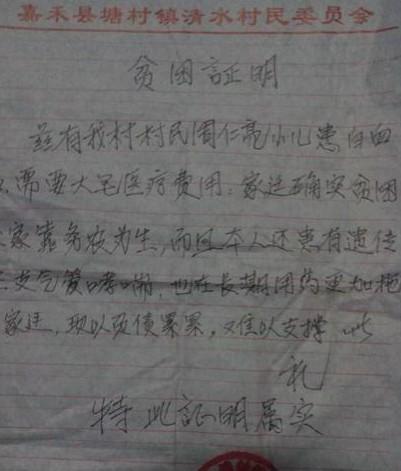 嘉禾县塘村镇清水村民委员会
贫困証明
兹有我村村民周仁亮小儿患白血
需要大笔医疗费用。家廷确实贫困
家靠务农为生,而且本人还患有遗传
支气管哮喘,也在长期用药更加拖
家廷,现以负债累累,难以支撑 此
礼
特此証明属实